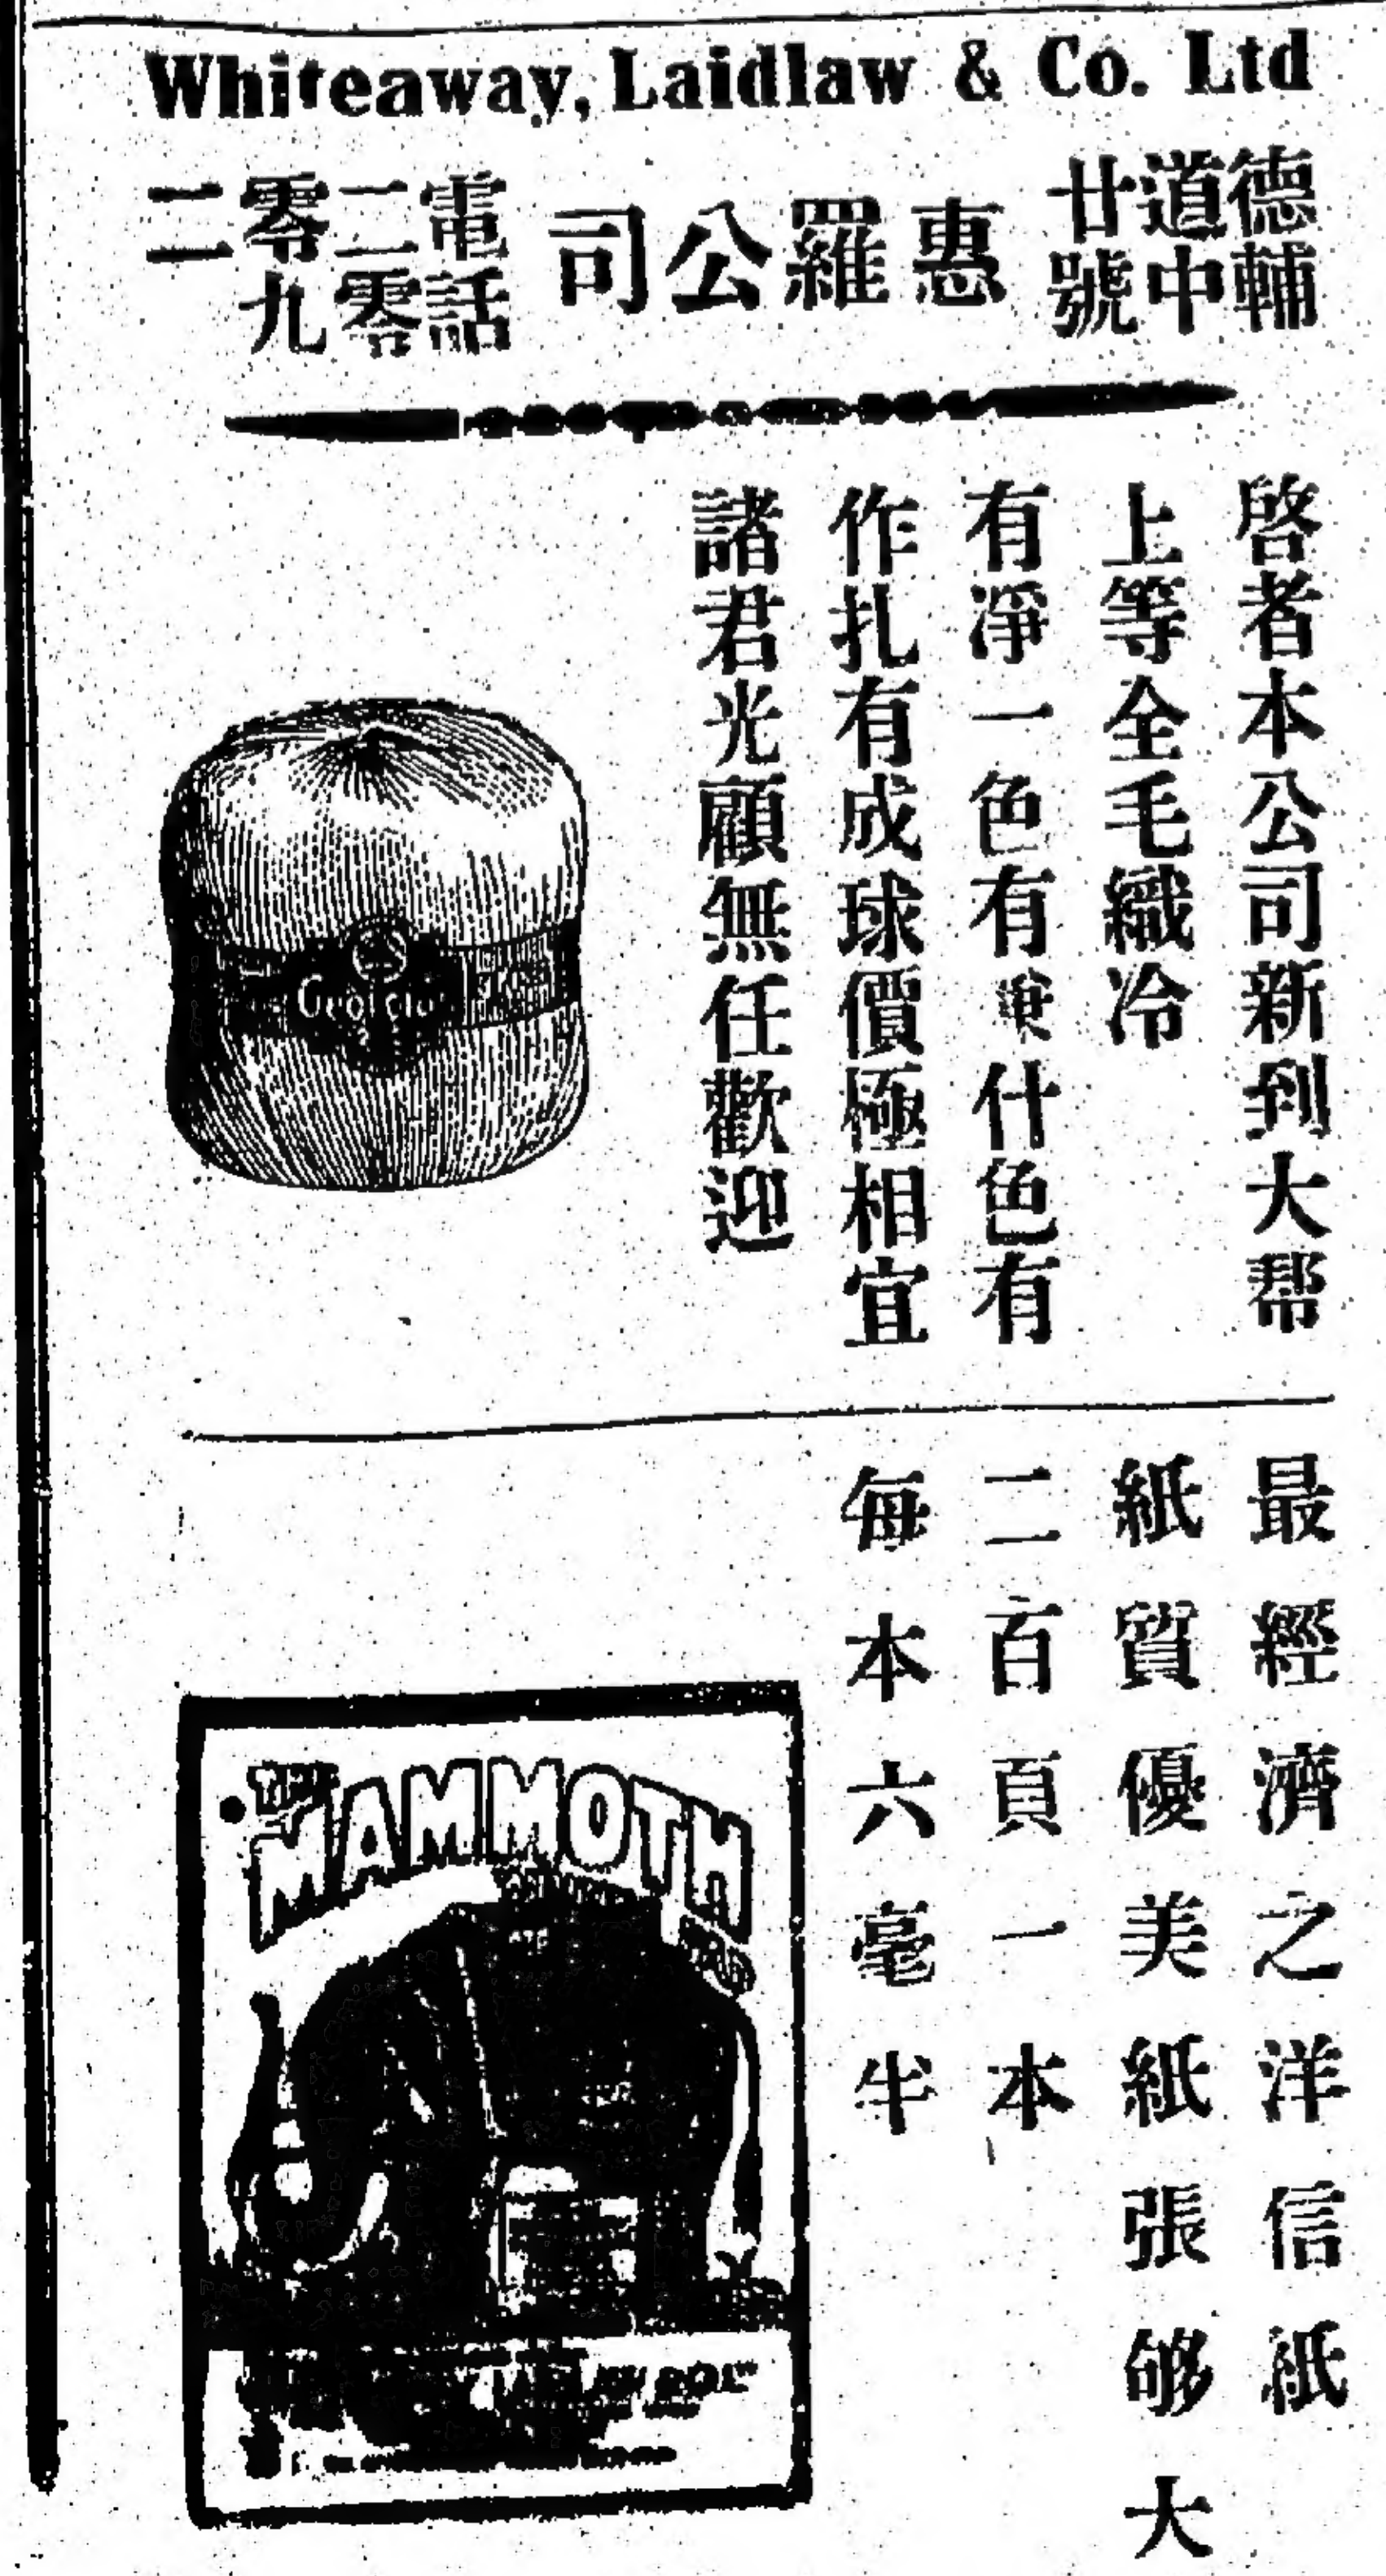 Whiteaway, Laidlaw & Co. Ltd
德輔
道中
廿號
惠羅公司
電話
二零
零九
二
啓者本公司新到大幫
上等全毛織冷
有淨一色有兼什色有
作扎有成球價極相宜
諸君光顧無任歡迎
最經濟之洋信紙
紙質優美紙張够大
二百頁一本
每本六毫半
THE
MAMMOTH